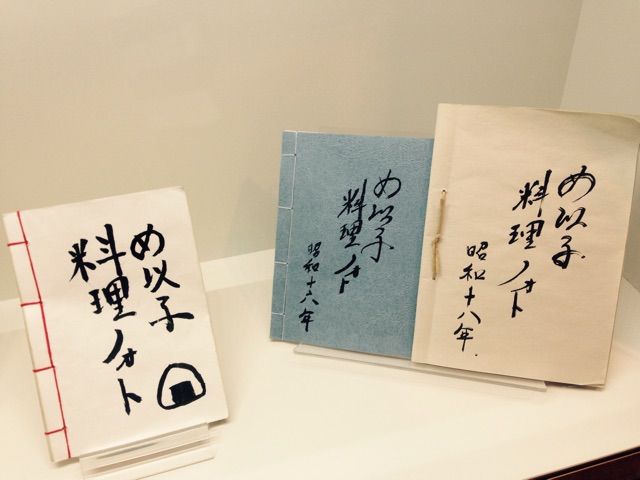 め以子
料理ノオト
め以子
料理ノオト
昭和十六年
め以子
料理ノオト
昭和十八年.